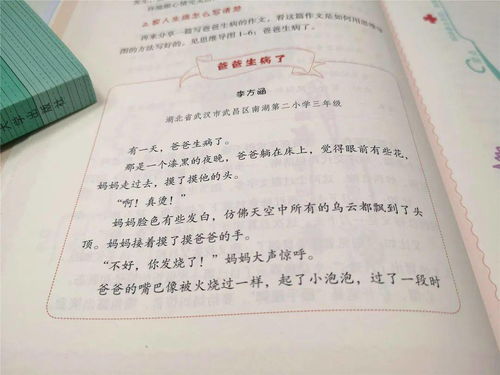 2.家人生病怎么写清楚
再来分享一篇写爸爸生病的作文，看这篇作文是如何用思维导
图的方法写好的。见思维导图1-6：爸爸生病了。
爸爸生病了
李方涵
湖北省武汉市武昌区南湖第二小学三年级
有一天，爸爸生病了。
那是一个漆黑的夜晚，爸爸躺在床上，觉得眼前有些花，
妈妈走过去，摸了摸他的头。
“啊！真烫！”
妈妈脸色有些发白，仿佛天空中所有的乌云都飘到了头
顶。妈妈接着摸了摸爸爸的手。
“不好，你发烧了！”妈妈大声惊呼。
爸爸的嘴巴像被火烧过一样，起了小泡泡，过了一段时
大学出版社